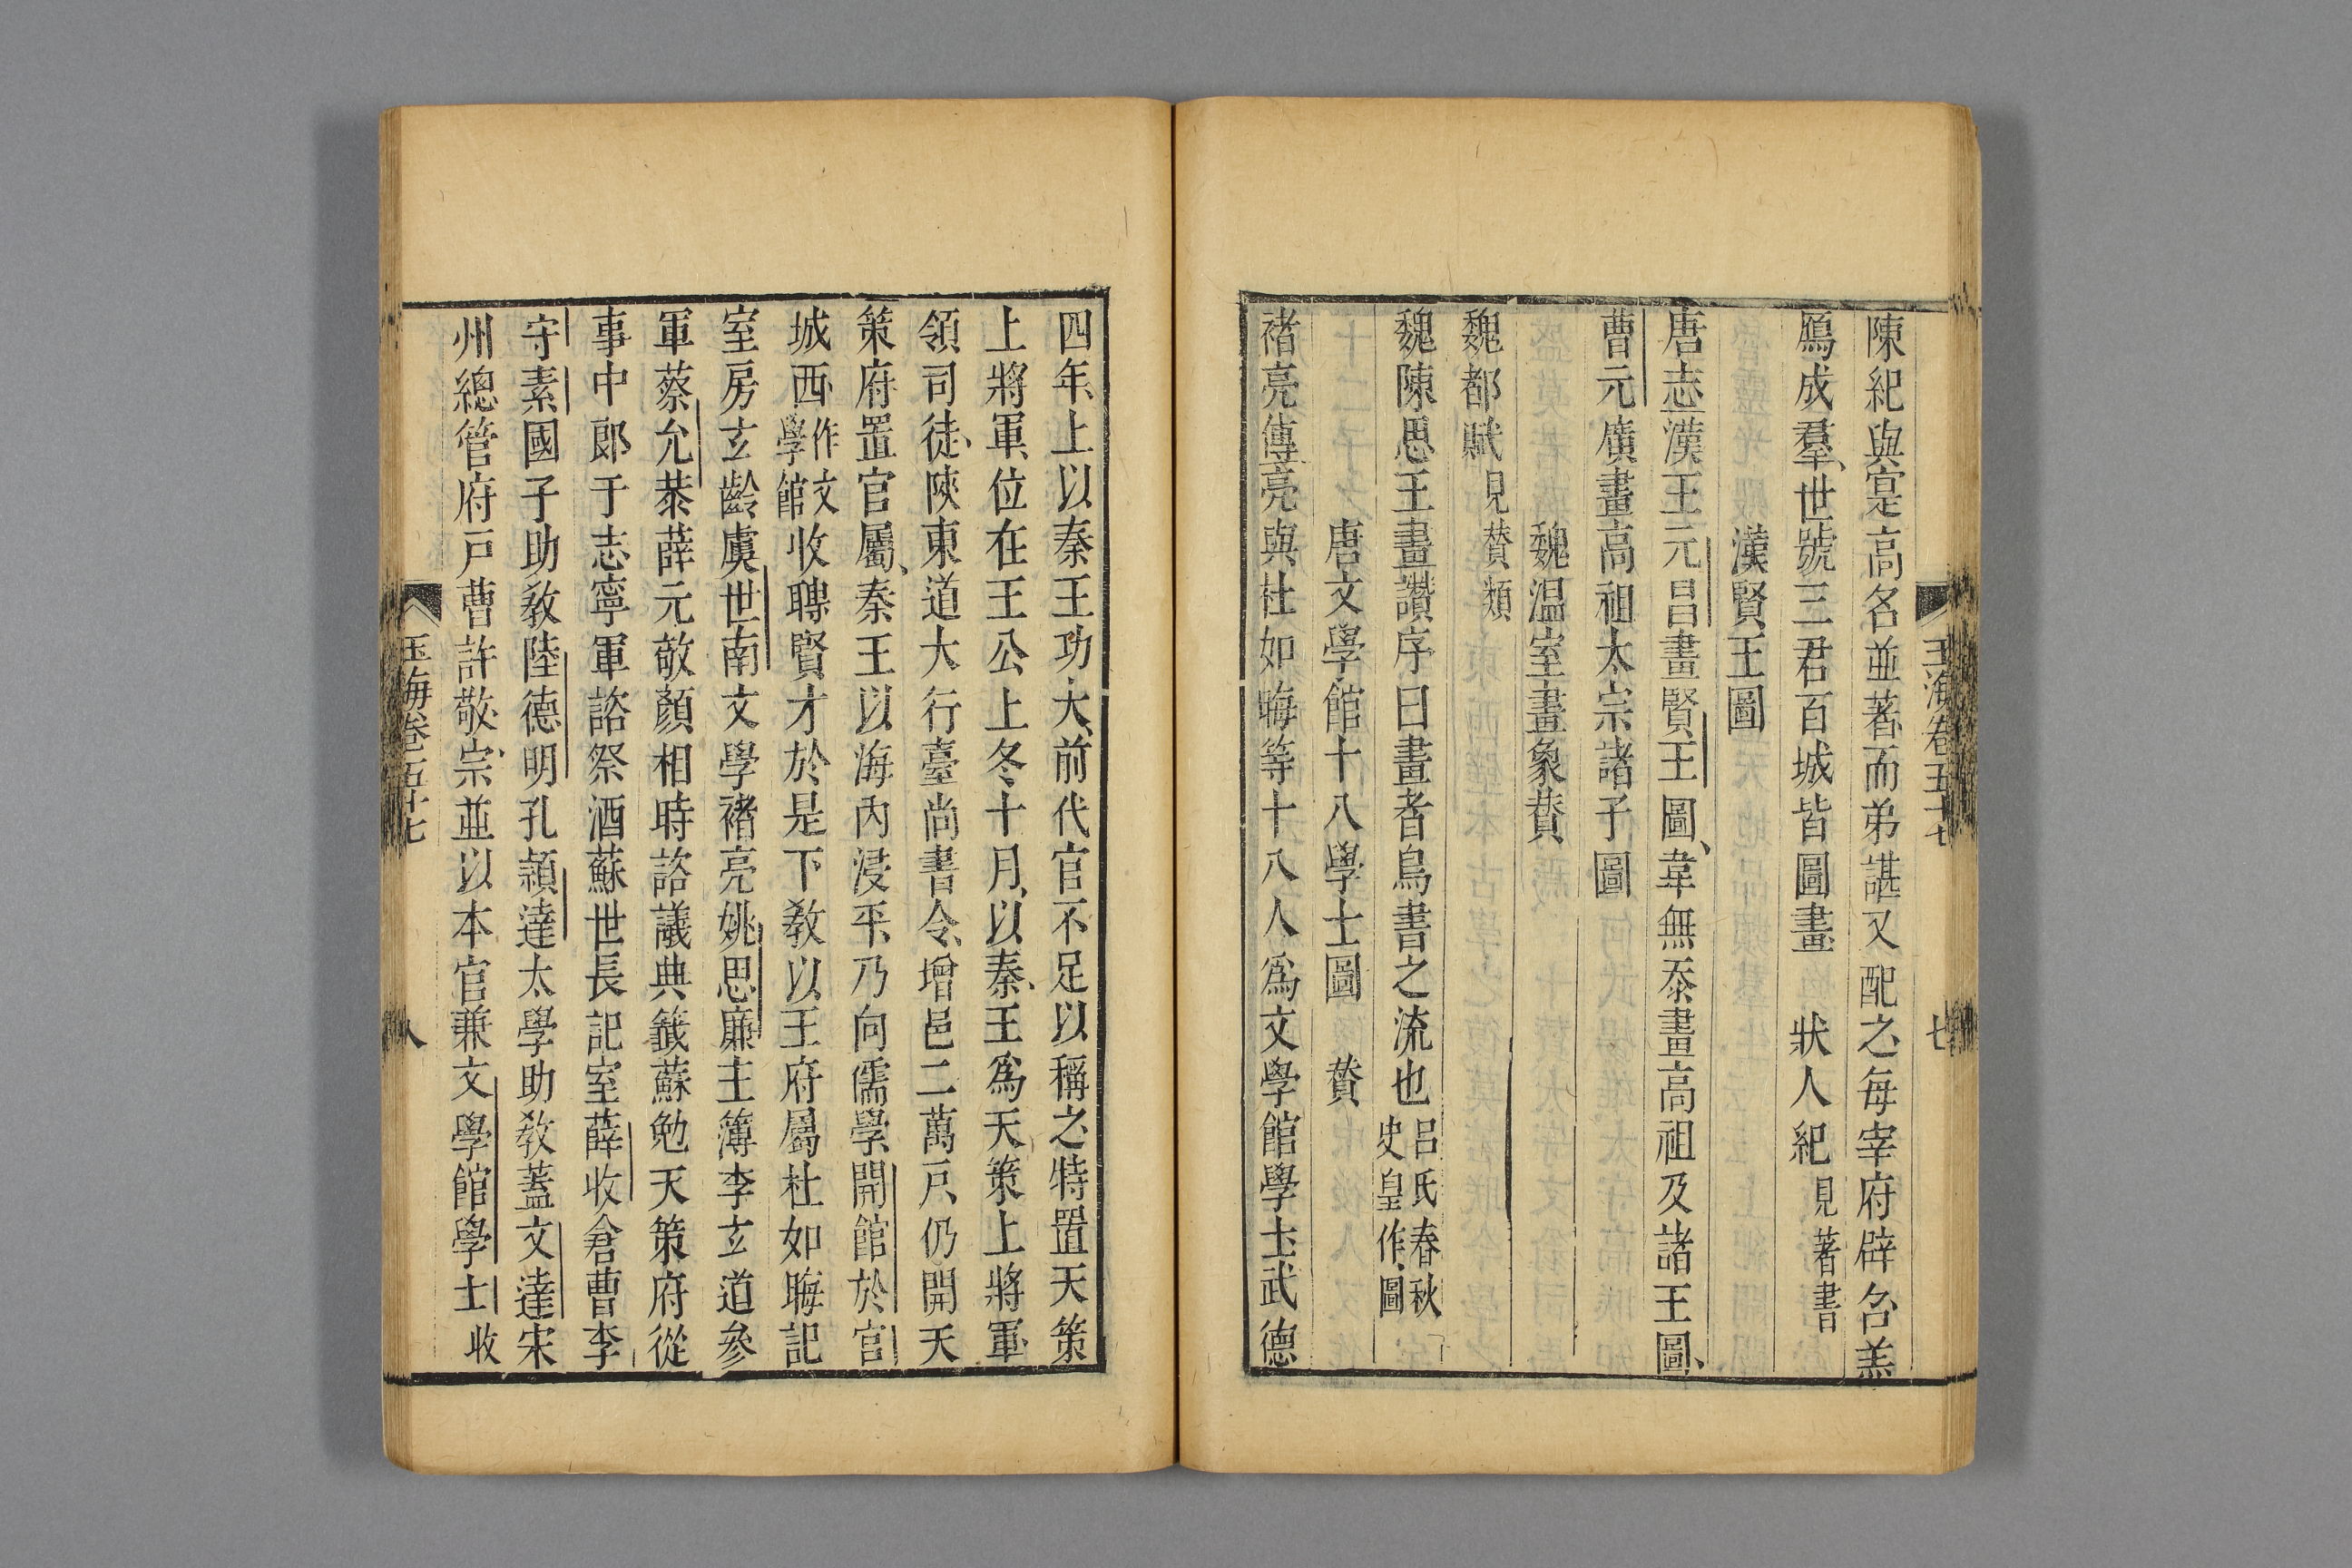 玉海卷五十七
七
陳紀與寔高名並著而弟諶又配之每宰府辟召羔
鴈成羣世號三君百城皆圖畫　狀人紀見著書
漢賢王圖
唐志漢王元昌畫賢王圖韋無忝畫高祖及諸王圖
曹元廣畫高祖太宗諸子圖
魏温室畫象贊
魏都賦見贊類
魏陳思王畫讚序曰畫者鳥書之流也呂氏春秋史皇作圖
唐文學館十八學士圖　贊
褚亮傳亮與杜如晦等十八人爲文學館學士武德
四年上以秦王功大前代官不足以稱之特置天策
上將軍位在王公上冬十月以秦王爲天策上將軍
領司徒陝東道大行臺尚書令增邑二萬戸仍開天
策府置官屬秦王以海內浸平乃向儒學開館於宫
城西作文學館收聘賢才於是下教以王府屬杜如晦記
室房玄齡虞世南文學褚亮姚思廉主簿李玄道參
軍蔡允恭薛元敬顏相時諮議典籤蘇勉天策府從
事中郎于志寧軍諮祭酒蘇世長記室薛收倉曹李
守素國子助教陸德明孔頴達太學助教蓋文達宋
州總管府戸曹許敬宗並以本官兼文學館學士收
玉海卷五十七
八